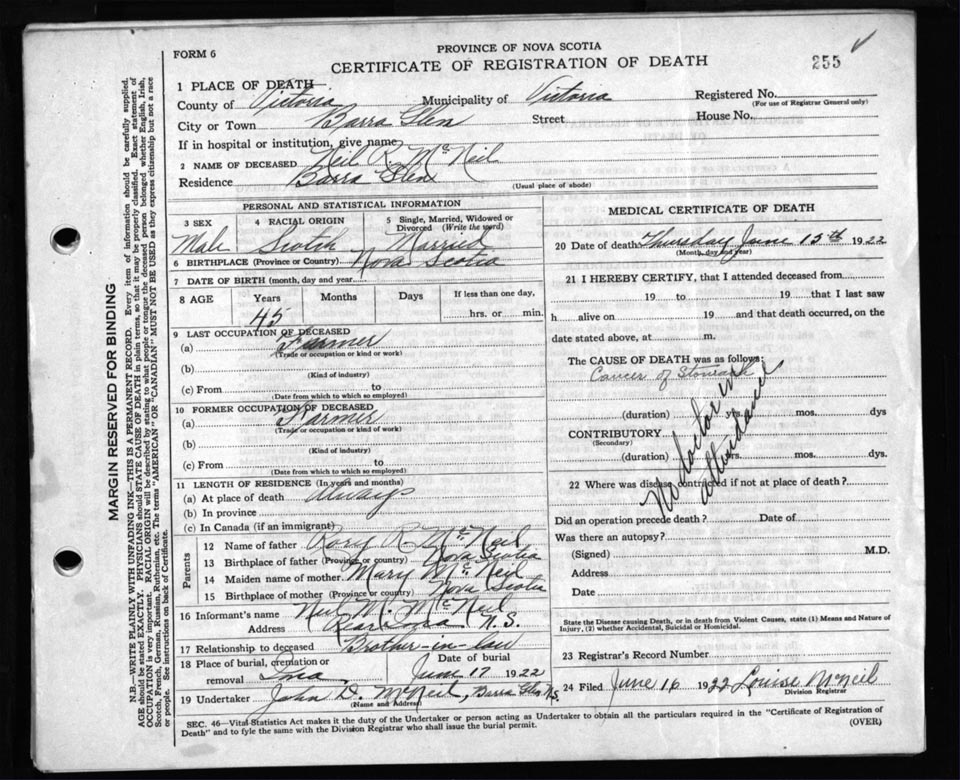 FORM 6
PROVINCE OF NOVA SCOTIA
CERTIFICATE OF REGISTRATION OF DEATH
255
1 PLACE OF DEATH
County of Victoria Municipality of Victoria Registered No.
(For use of Registrar General only)
City or Town Barra Glen Street House No.
If in hospital or institution, give name
2 NAME OF DECEASED Neil R. McNeil
Residence Barra Glen
(Usual place of abode)
PERSONAL AND STATISTICAL INFORMATION
3 SEX 4 RACIAL ORIGIN 5 Single, Married, Widowed or Divorced (Write the word)
Male Scotch Married
6 BIRTHPLACE (Province or Country) Nova Scotia
7 DATE OF BIRTH (month, day and year)
8 AGE Years Months Days If less than one day,
45 hrs. or min.
9 LAST OCCUPATION OF DECEASED
(a) Farmer
(Trade or occupation or kind or work)
(b)
(Kind of industry)
(c) From to
(Date from which to which so employed)
10 FORMER OCCUPATION OF DECEASED
(a) Farmer
(Trade or occupation or kind of work)
(b)
(Kind of industry)
(c) From to
(Date from which to which so employed)
11 LENGTH OF RESIDENCE (In years and months)
(a) At place of death Always
(b) In province
(c) In Canada (if an immigrant)
Parents
12 Name of father Rory R. McNeil
13 Birthplace of father (Province or country) Nova Scotia
14 Maiden name of mother Mary McNeil
15 Birthplace of mother (Province or country) Nova Scotia
16 Informant's name Neil M. McNeil
Address N.S.
17 Relationship to deceased Brother-in-law
18 Place of burial, cremation or removal Iona Date of burial June 17 1922
19 Undertaker John D. McNeil, Barra Glen N.S.
(Name and Address)
MEDICAL CERTIFICATE OF DEATH
20 Date of death Thursday June 15th 1922
(Month, day and year)
21 I HEREBY CERTIFY, that I attended deceased from
19 to 19 that I last saw
h alive on 19 and that death occurred, on the
date stated above, at m.
The CAUSE OF DEATH was as follows:
Cancer of Stomach
(duration) yrs. mos. dys
CONTRIBUTORY
(Secondary)
(duration) yrs. mos. dys.
No doctor in attendance
22 Where was disease contracted if not at place of death?
Did an operation precede death? Date of
Was there an autopsy?
(Signed) M.D.
Address
Date
State the Disease causing Death, or in death from Violent Causes, state (1) Means and Nature of
Injury, (2) whether Accidental, Suicidal or Homicidal.
23 Registrar's Record Number
24 Filed June 16 1922 Louise McNeil
Division Registrar
SEC. 46—Vital Statistics Act makes it the duty of the Undertaker or person acting as Undertaker to obtain all the particulars required in the "Certificate of Registration of
Death" and to fyle the same with the Division Registrar who shall issue the burial permit.
(OVER)
MARGIN RESERVED FOR BINDING
N.B.—WRITE PLAINLY WITH UNFADING INK—THIS IS A PERMANENT RECORD. Every item of information should be carefully supplied.
AGE should be stated EXACTLY. PHYSICIANS should STATE CAUSE OF DEATH in plain terms, so that it may be properly classified. Exact statement of
OCCUPATION is very important. RACIAL ORIGIN will be described by stating to what people or tongue the deceased person belonged whether English, Irish,
Scotch, French, German, Russian, Ruthenian, etc. The terms "AMERICAN" OR "CANADIAN" MUST NOT BE USED as they express citizenship but not a race
or people. See instructions on back of Certificate.